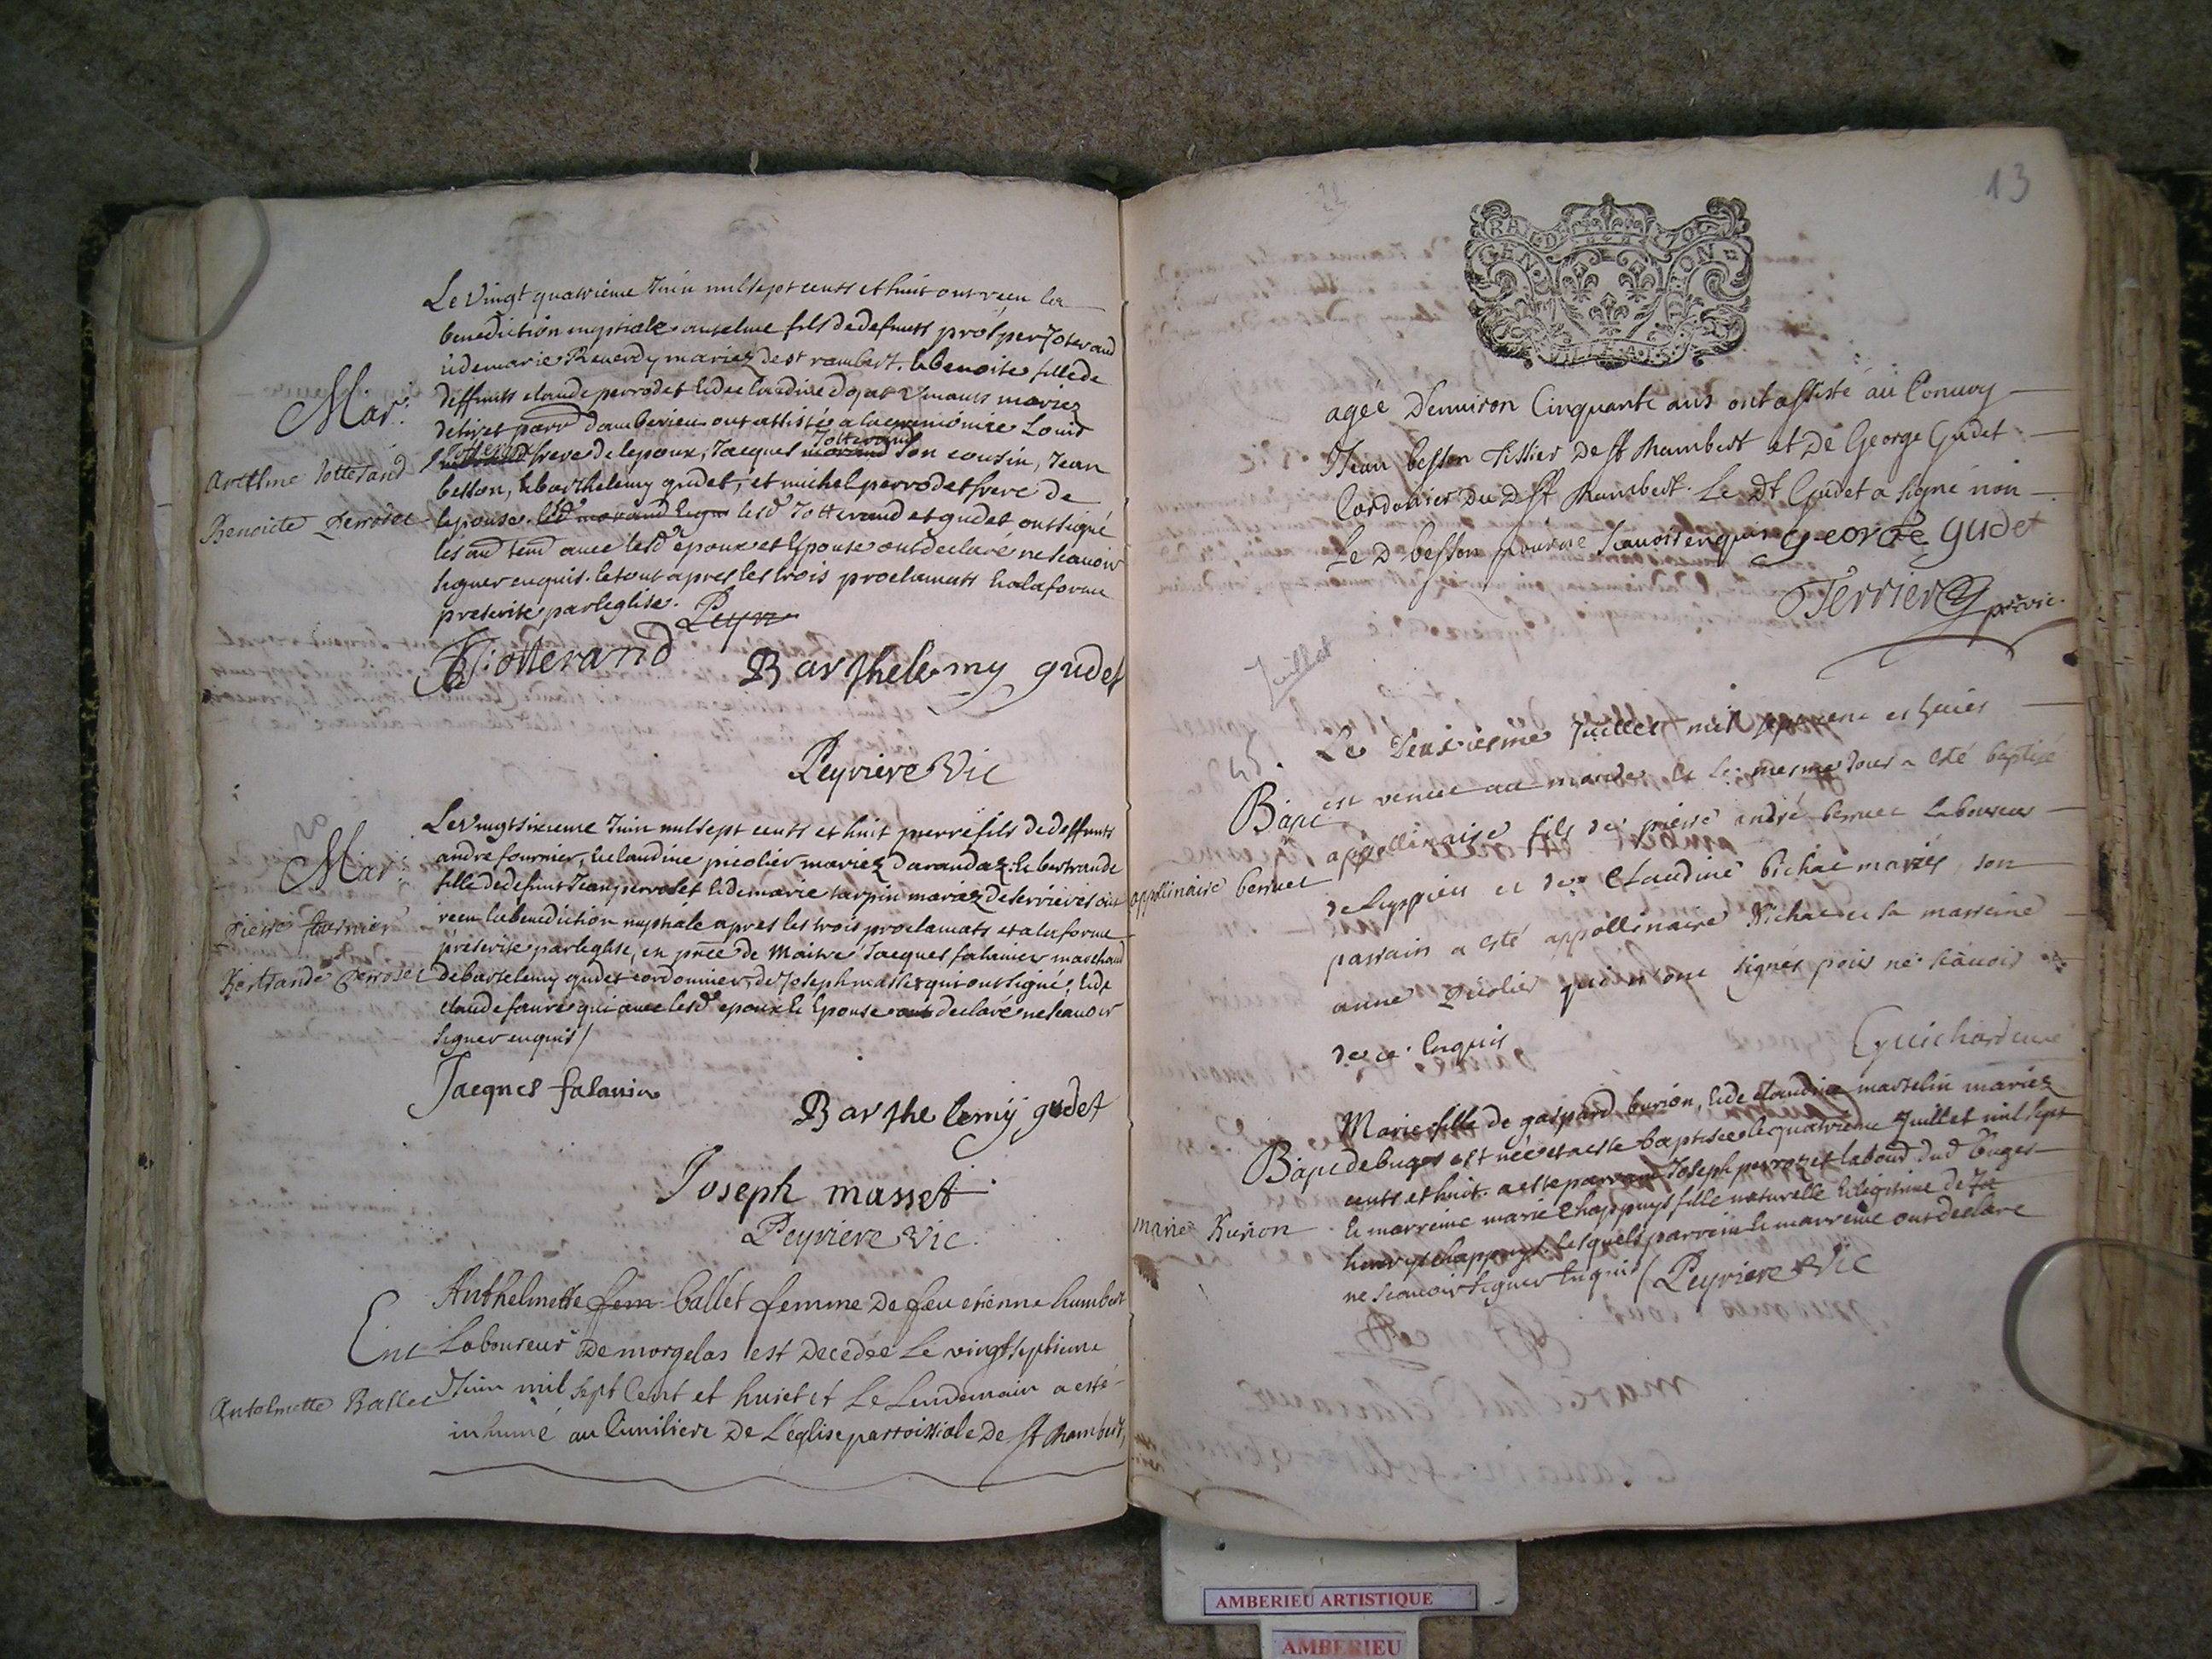 Le vingt quatrieme Juin mil sept cents et huit ont receu la
benediction nuptiale anselme fils de defunts prosper Joterand
et de marie Reverdy mariez de st rambert. et benoite fille de
deffunts claude perrodet et de claudine dojat vivants mariez
parr d'amberieu ont assistés a la ceremonie Louis
Mar.
Jotterand frere de lepoux, Jacques morand Jotterand son cousin, Jean
Antelme Jotterand
besson, et barthelemy gudet, et michel perrodet frere de
Benoicte Perrodet
lepouse. lesd morand lesd Jotterand et gudet ont signé
avec lesd epoux et Epouse ont declaré ne scavoir
signer enquis. le tout apres les trois proclamats et a la forme
prescrite par leglise. Peyr
Jotterand Barthelemy gudet
Peyriere Vic
Le vingt sixieme Juin mil sept cents et huit pierre fils de deffunts
andre fournier, et claudine picolier mariez darandaz. et bertrande
Mar
fille de defunt Jean perrodet et de marie tarpin mariez de serrieres ont
receu la benediction nuptiale apres les trois proclamats et a la forme
Pierre fournier
prescrite par leglise, en pnce de Maitre Jacques falavier marchand
Bertrande Perrodet
de bartelemy gudet cordonnier, de Joseph masset qui ont signé, et de
claude favre qui avec lesd epoux et Epouse ont declaré ne scavoir
signer enquis /
Jacques falavier
Barthelemÿ gudet
Joseph masset
Peyriere Vic.
Anthelmette fem ballet femme De feu etienne humbert
Ent Laboureur De morgelas est Decedée Le vingt septieme
Antelmette Ballet
Juin mil sept Cent et huict et Le Lendemain a esté
inhumé au Cimiliere De L'église parroissiale De St Rambert,
13
GEN. DE LA
agée D'environ Cinquante ans ont assisté au Convoy
Jean besson Tissier De st Rambert et De George Gudet
Cordonier Du D st Rambert. Le Dt Gudet a signé non
Le D besson pour ne scavoir enquis George gudet
Terrier
Juillet
Le Deuxiesme Juillet mil sept cent et huict
est venu au monde et le mesme Jour a esté baptisé
Bapt
appollinaire fils de pierre andré bernet laboureur
appolinaire bernet
de Luppieu et de Claudine bichat mariés, son
parrain a esté appollinaire bichat et sa marreine
anne picolier qui n'ont signés pour ne scavoir
de ce Enquis
Guichard curé
Marie fille de gaspard burion, et de claudine marselin mariez
Bapt de buges est née et a esté baptisée le quatrieme Juillet mil sept
cents et huit. a esté parrain Joseph perrozet labour dud buges
marie Burion
et marreine marie Chappuys fille naturelle et legitime de
henry chappuys. lesquels parrein et marreine ont declaré
ne scavoir signer enquis / Peyriere Vic
AMBERIEU ARTISTIQUE
AMBERIEU